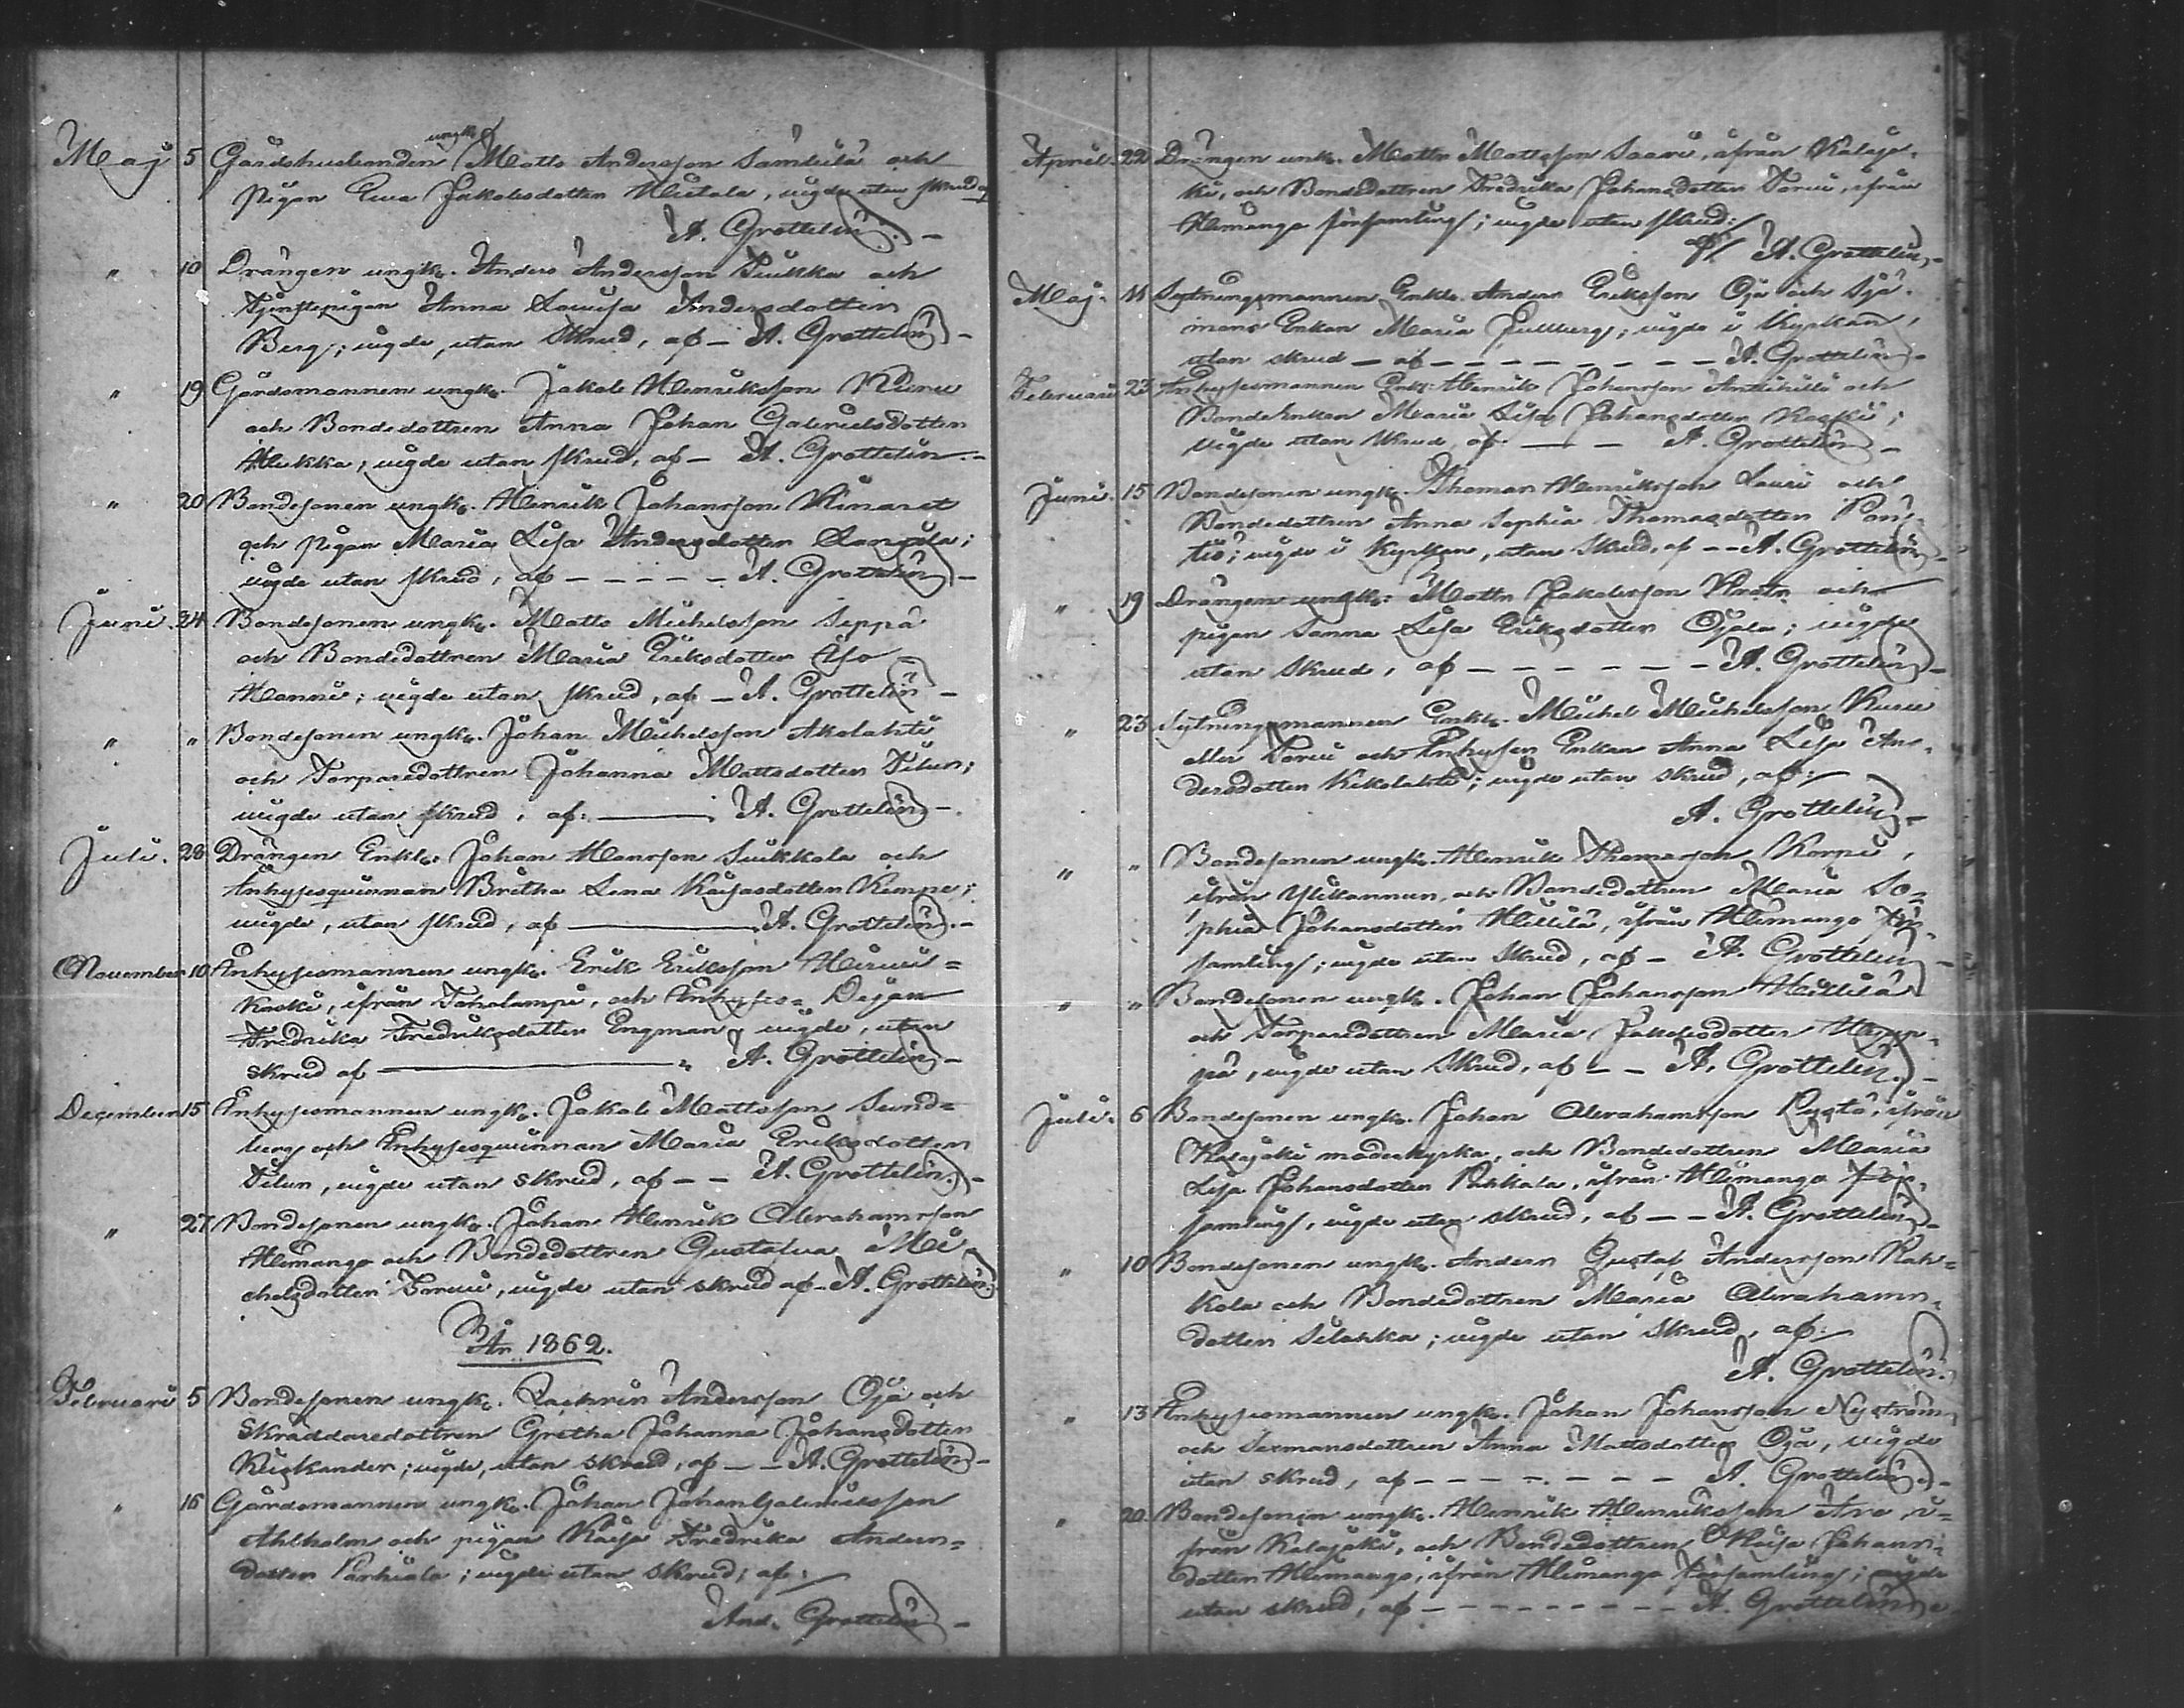 ungk.
Maj 5 Gårdshusbonden Matts Andersson Sämtilä och
pigan Ewa Jakobsdotter Mietala, vigda utan skrud af
A. Grottelin. –
" 10 Drängen ungk. Anders Andersson Tiukka och
Tjenstepigan Anna Lovisa Andersdotter
Berg; vigde, utan skrud, af – A. Grottelin –
" 19 Gårdsmannen ungk. Jakob Henriksson Niru
och Bondedottren Anna Johan Gabrielsdotter
Hukka; vigde utan skrud, af – A. Grottelin. –
" 20 Bondesonen ungk. Henrik Johansson Kinaret
och pigan Maria Lisa Andersdotter Långsla;
vigde utan skrud, af – – – – – A. Grottelin –
Juni. 24 Bondesonen ungk. Matts Michelsson Seppä
och Bondedottren Maria Eriksdotter Yso –
Hannu; vigde utan skrud, af – A. Grottelin –
" " Bondesonen ungk. Johan Michelsson Akolahti
och Torparedottren Johanna Mattsdotter Tilus;
vigde utan skrud, af: – A. Grottelin –
Juli. 28 Drängen Enkl. Johan Hansson Suikkola och
Inhysesqvinnan Britha Lena Kaisasdotter Kimpe;
vigde, utan skrud, af – A. Grottelin. –
November 10 Inhysesmannen ungk. Erik Eriksson Hirvi=
koski, ifrån Toholampi, och Inhyses= Pigan
Fredrika Fredriksdotter Engman; vigde, utan
skrud af – " A. Grottelin –
December 15 Inhysesmannen ungk. Jakob Mattsson Sund=
berg och Inhysesqvinnan Maria Eriksdotter
Tilus, vigde utan skrud, af – – A. Grottelin. –
" 27 Bondesonen ungk. Johan Henrik Abrahamsson
Himango och Bondedottren Gustafva Mi=
chelsdotter Torvi, vigde utan skrud af – A. Grottelin.
År 1862.
Februari 5 Bondesonen ungk. Zachris Andersson Oja och
Skräddaredottren Gretha Johanna Johansdotter
Kiiskander; vigde, utan skrud, af – – A. Grottelin –
" 16 Gårdsmannen ungk. Johan Johan Gabrielsson
Ahlholm och pigan Kaisa Fredrika Anders=
dotter Parhiala; vigde utan skrud; af:
And. Grottelin –
April. 22 Drängen unk. Matts Mattsson Saari, ifrån Kalajo=
ki, och Bondedottren Fredrika Johansdotter Torvi, ifrån
Himango församling; vigde utan skrud;
af/ A. Grottelin –
Maj. 11 Sytningsmannen Enkl. Anders Eriksson Oja och Sjö=
mans Enkan Maria Jullberg; vigde i Kyrkan,
utan skrud – af – – – – – – – – A. Grottelin –
Februari 23 Inhysesmannen Enkl. Henrik Johansson Anttikillä och
Bonde Enkan Maria Lisa Johansdotter Kaski;
vigde utan skrud, af – – A. Grottelin –
Juni. 15 Bondesonen ungk. Thomas Henriksson Lauri och
Bondedottren Anna Sophia Thomasdotter Pön=
tiö; vigde i Kyrkan, utan skrud, af – – A. Grottelin –
" 19 Drängen ungk: Matts Jakobsson Klootz och
pigan Sanna Lisa Eriksdotter Ojala; vigde
utan skrud, af – – – – – – A. Grottelin –
" 23. Sytningsmannen Enkl. Michel Michelsson Kuru
eller Torvi och Inhyses Enkan Anna Lisa An=
dersdotter Kikolahti; vigde utan skrud, af:
A. Grottelin –
" " Bondesonen ungk. Henrik Thomasson Korpi,
ifrån Ylikannus, och Bondedottren Maria So=
phia Johansdotter Hillilä, ifrån Himango för=
samling; vigde utan skrud, af – A. Grottelin –
" " Bondesonen ungk. Johan Johansson Hillilä
och Torparedottren Maria Jakobsdotter Ukyp=
pä, vigde utan skrud, af – – A. Grottelin. –
Juli. 6 Bondesonen ungk. Johan Abrahamsson Rystö, ifrån
Kalajoki moderkyrka, och Bondedottren Maria
Lisa Johansdotter Pahkala, ifrån Himango för=
samling, vigde utan skrud, af – – A. Grottelin –
" 10 Bondesonen ungk. Anders Gustaf Andersson Rah=
kola och Bondedottren Maria Abrahams=
dotter Silakka; vigde utan skrud, af:
A. Grottelin.
" 13 Inhysesmannen ungk. Johan Johansson Nyström,
och Sexmansdottren Anna Mattsdotter Oja, vigde
utan skrud, af – – – – – – – A. Grottelin –
" 20. Bondesonen ungk. Henrik Henriksson Aro, i=
från Kalajoki, och Bondedottren Kaisa Johans=
dotter Himango, ifrån Himango församling; vigde
utan skrud, af – – – – – – – – – A. Grottelin